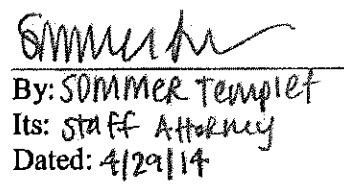 By: SOMMER Templet
Its: Staff Attorney
Dated: 4/29/14